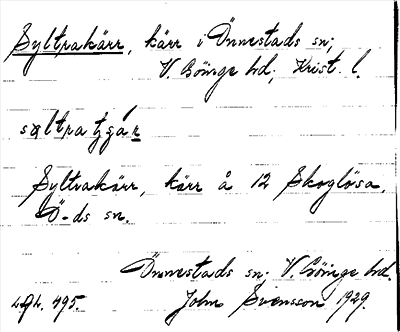 Syltrakärr, kärr i Önnestads sn;
V. Göinge hd; Krist. l.
Syltrakärr, kärr å 12 Skoglösa,
Ö-ds sn.
Önnestads sn. V. Göinge hd.
John Svensson 1929.